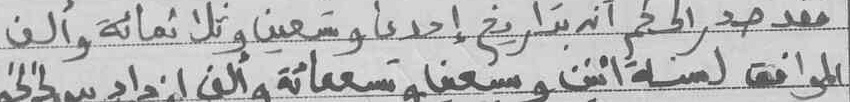 فقد صدر الحكم أنه بتاريخ إحدى وتسعين وثلاثمائة وألف
الموافق لسنة اثنين وسبعين وتسعمائة وألف ازداد